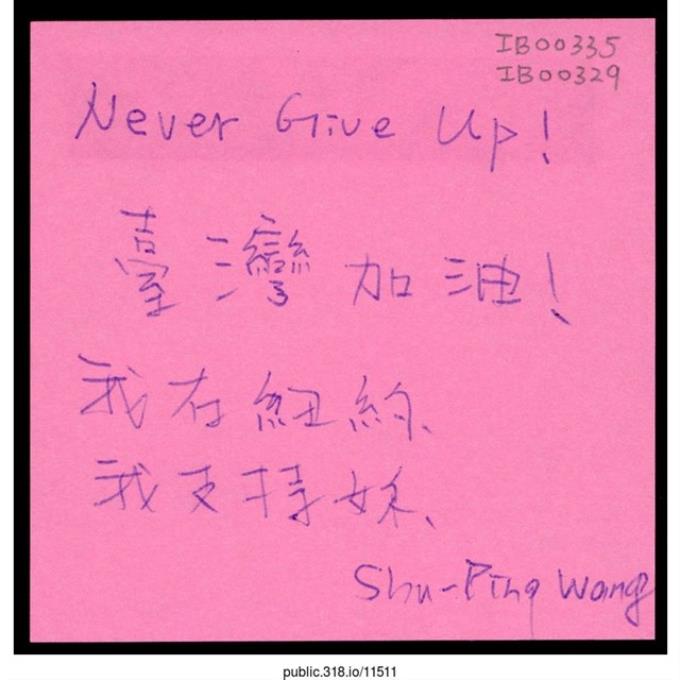 IB00335
IB00329
Never Give Up!
臺灣加油!
我在紐約、
我支持妳、
Shu-Ping Wang
public.318.io/11511